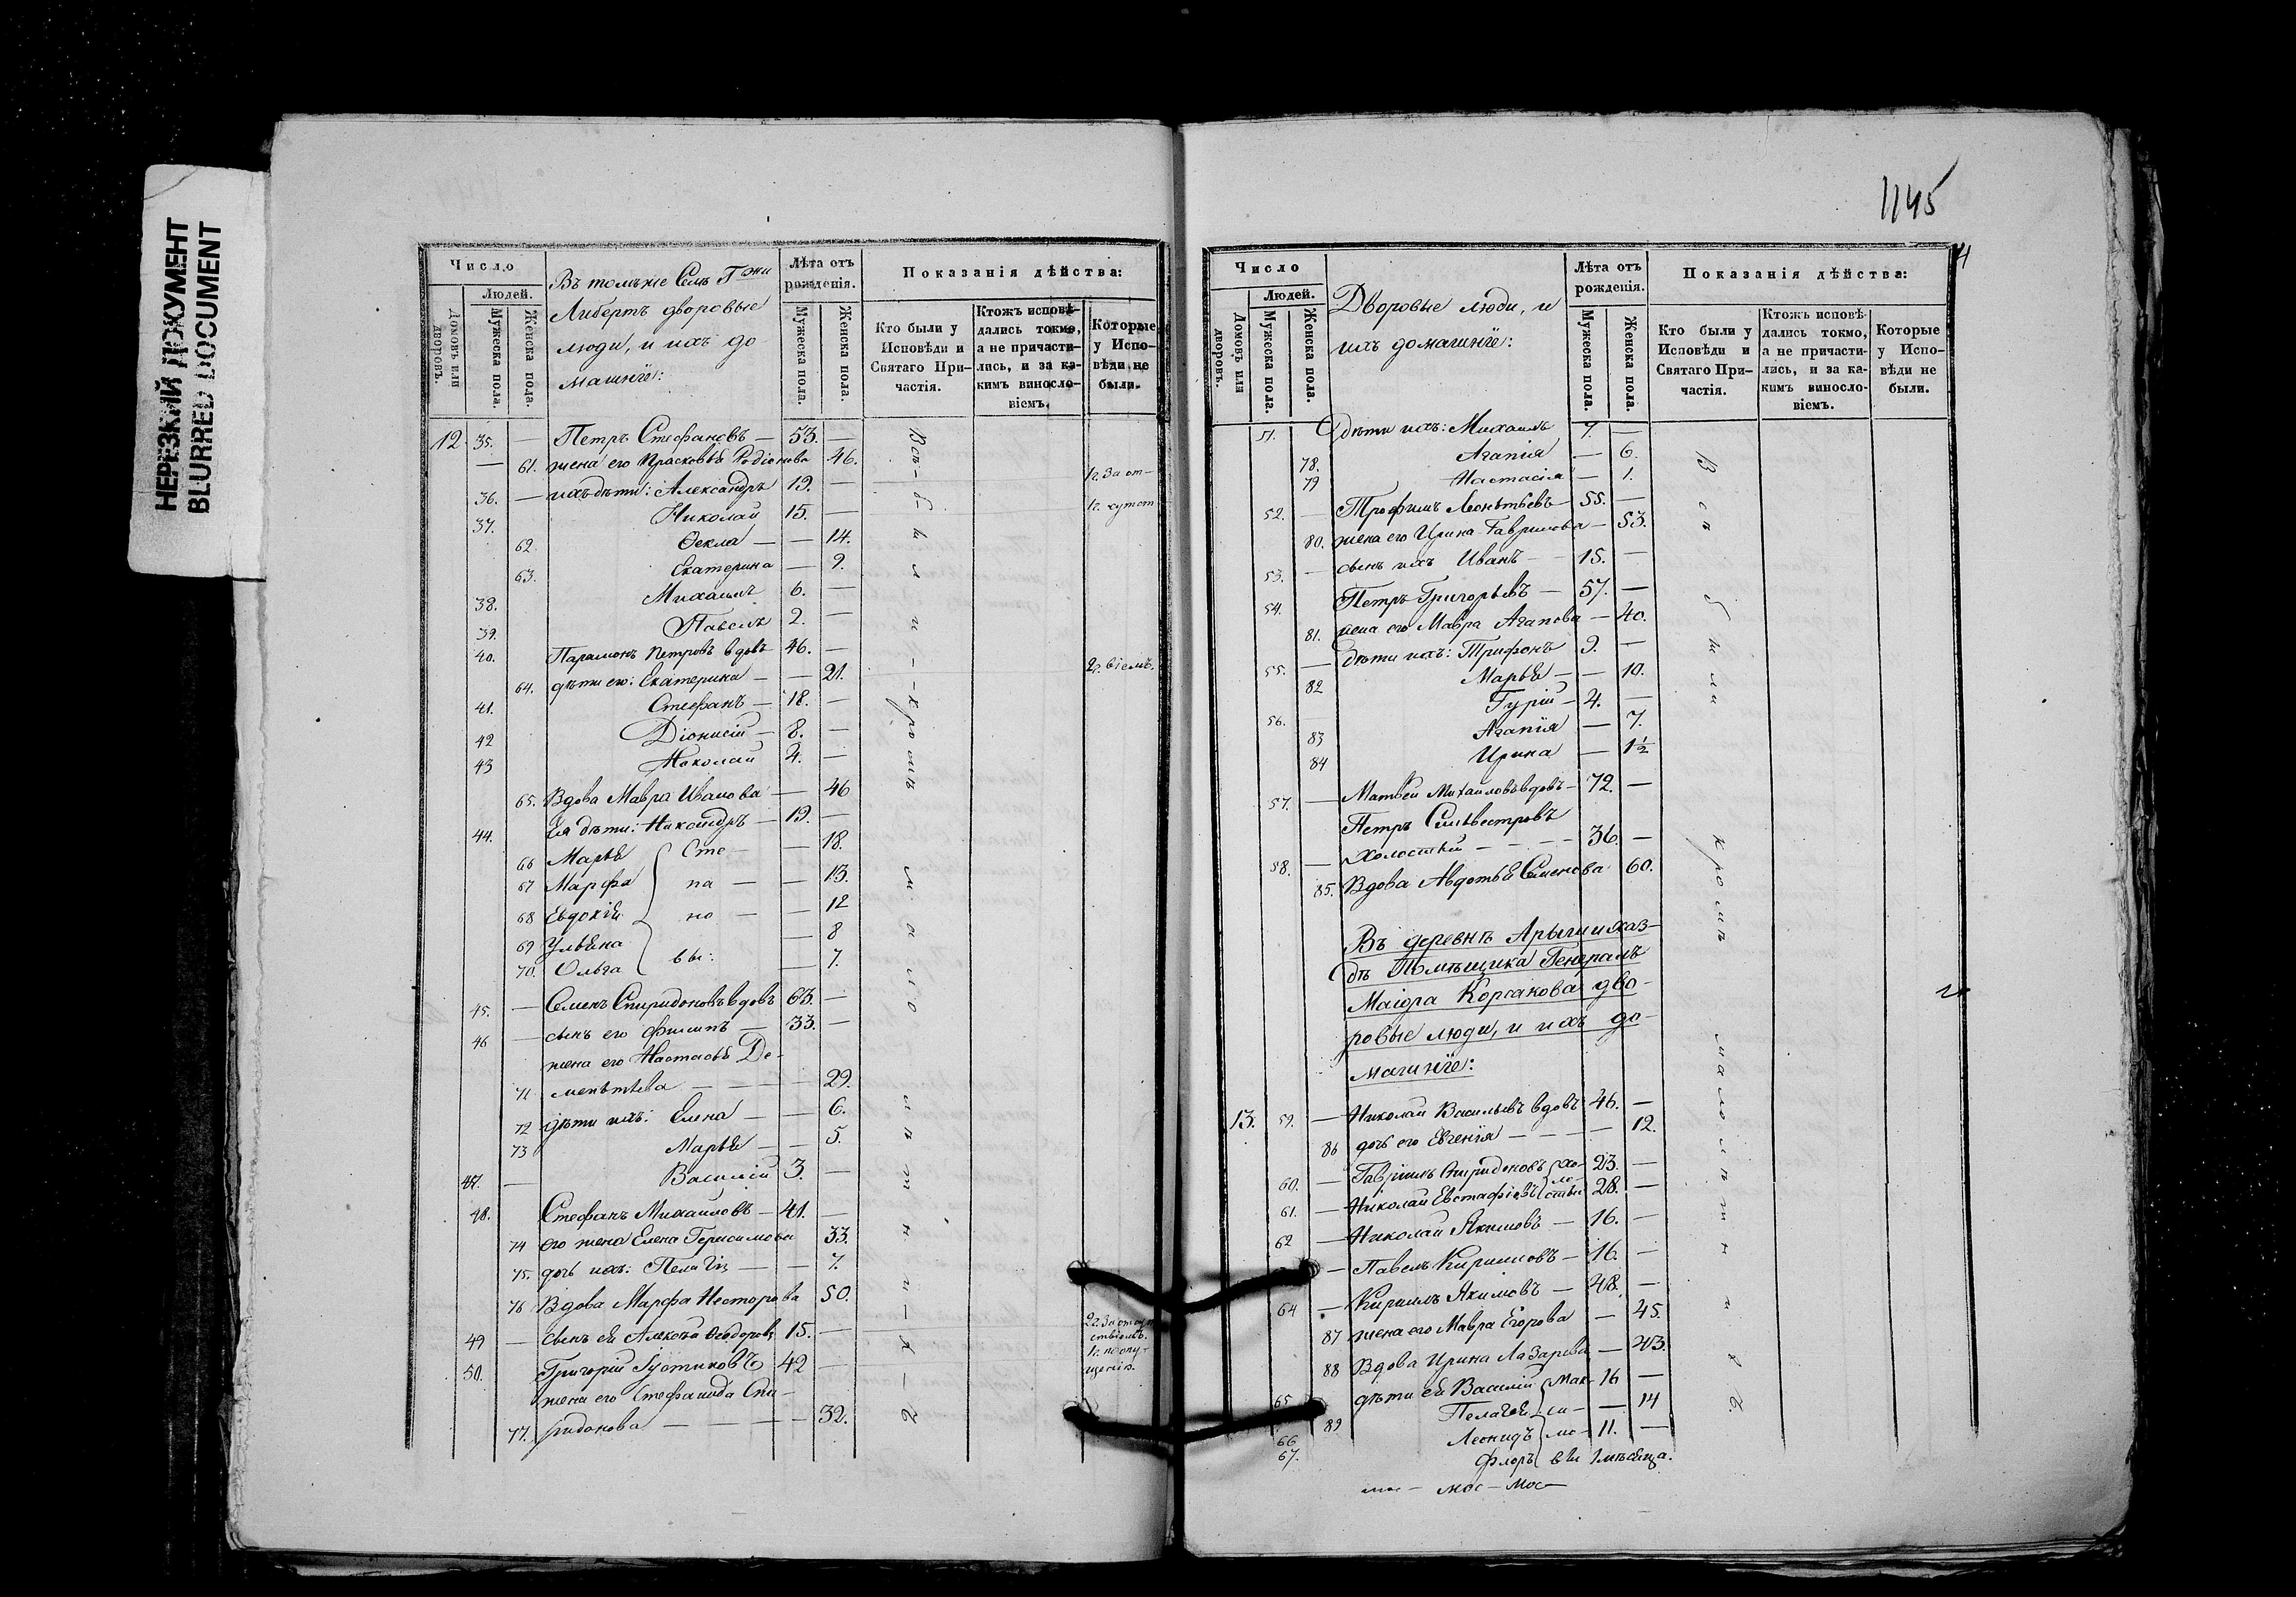 НЕРЕЗКИЙ ДОКУМЕНТ
BLURRED DOCUMENT
Число
Людей.
Домовъ или дворовъ.
Мужеска пола.
Женска пола.
Въ томъже Селѣ Гжи
Либертъ дворовые
люди, и ихъ до
машнїе:
Лѣта отъ рожденія.
Мужеска пола.
Женска пола.
Показанія дѣйства:
Кто были у Исповѣди и Святаго Причастія.
Ктожъ исповѣдались токмо, а не причастились, и за какимъ винословіемъ.
Которые у Исповѣди не были.
12. 35. — Петръ Стефановъ — 53. —
— 61. жена его Прасковья Родіонова 46.
36. — ихъ дѣти: Александръ 19. —
37. Николай 15. —
62. Ѳекла — — 14.
63. Екатерина — 9.
38. Михаилъ 6. —
39. Павелъ 2. —
40. Парамонъ Петровъ вдовъ 46. —
64. дѣти его: Екатерина — — 21.
41. Стефанъ — 18. —
42 Діонисій — 8. —
43 Николай 4. —
65. Вдова Мавра Иванова — 46
44. Ея дѣти: Никандръ — 19. —
66 Марья Сте — — 18.
67 Марфа па — — 13.
68 Евдокія но — — 12
69 Ульяна — 8
70. Ольга вы: — 7.
45. — Семенъ Спиридоновъ вдовъ 63. —
46 — сынъ его Филипъ — 33. —
жена его Настасья Де-
71 ментьева — — — 29.
72 дѣти ихъ: Елена — — 6.
73 Марья — — 5.
47. — Василій 3. —
48. Стефанъ Михайловъ — 41. —
74 его жена Елена Герасимова 33.
75. дочь ихъ: Пелагія — — 7.
76 Вдова Марфа Несторова 50.
49 — сынъ ея Алексѣй Ѳеодоровъ 15. —
50. Григорій Густиковъ 42 —
жена его Стефанида Спи-
77. ридонова — — — 32.
Всѣ - были - кромѣ малолѣтни-х-ъ
1г. За от-
1г. сутст
2г. віемъ.
2г. За отсут
ствіемъ.
1г. по опу-
щенію.
1145
4
Число
Людей.
Домовъ или дворовъ.
Мужеска пола.
Женска пола.
Дворовые люди, и
ихъ домашнїе:
Лѣта отъ рожденія.
Мужеска пола.
Женска пола.
Показанія дѣйства:
Кто были у Исповѣди и Святаго Причастія.
Ктожъ исповѣдались токмо, а не причастились, и за какимъ винословіемъ.
Которые у Исповѣди не были.
51. Дѣти ихъ: Михаилъ 7. —
78. Агапія — 6.
79 Настасія — 1.
52. — Трофимъ Леонтьевъ — 55. —
80. жена его Ирина Гаврилова — 53.
53. — сынъ ихъ Иванъ — 15. —
54. Петръ Григорьевъ — 57. —
81. жена его Мавра Агапова — 40.
55. — Дѣти ихъ: Трифонъ 9. —
82 Марья — — 10.
56. Гурій — 4. —
83 Агапїя — 7.
84 Ирина — 1½
57. — Матвѣй Михайловъ вдовъ — 72. —
Петръ Сильвестровъ
58. — Холостый — — — 36. —
85. Вдова Авдотья Семенова 60.
Въ деревнѣ Арышхаз-
дѣ Помѣщика Генералъ
Маіора Корсакова дво-
ровые люди, и ихъ до-
машнїе:
13. 59. — Николай Васильевъ вдовъ 46. —
86 дочь его Евгенїя — — — 12.
60. — Гавріилъ Спиридоновъ хо- 23. —
61. — Николай Евстафіевъ лостые 28. —
62 — Николай Якимовъ — 16. —
— Павелъ Кириловъ — 16. —
64 — Кирилъ Якимовъ — 48. —
87 жена его Мавра Егорова — 45.
88 Вдова Ирина Лазарева — 43.
65. дѣти ея Василій Мак- 16 —
89 Пелагея си — — 14
66 Леонидъ мо — 11. —
67. Флоръ вы 1 мѣсяца.
Всѣ были кромѣ малолѣтнихъ.